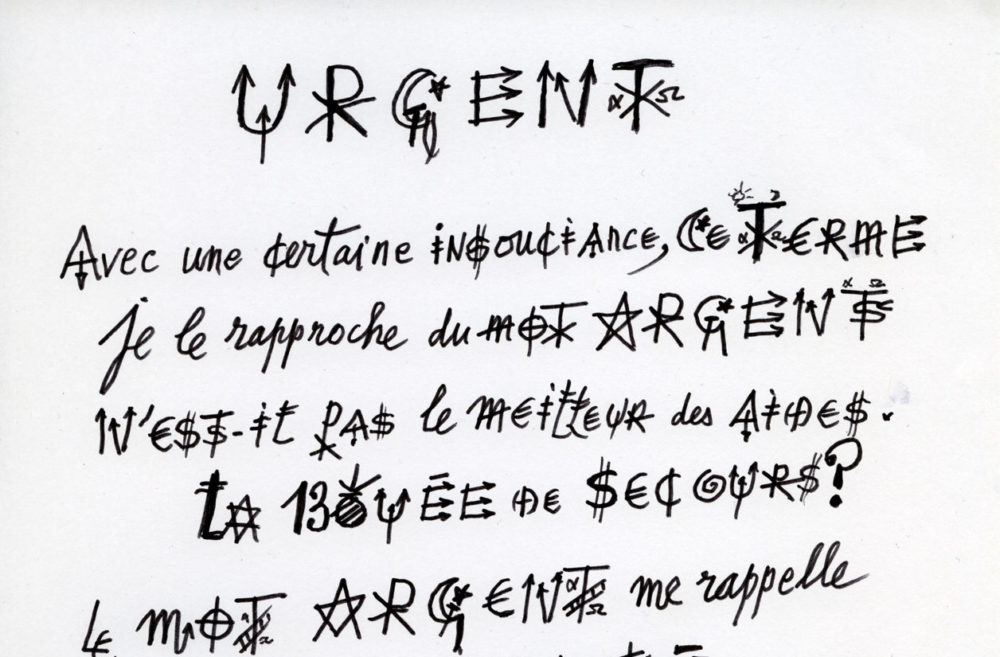 URGENT
Avec une certaine insouciance, CE TERME
je le rapproche du MOT ARGENT
N'EST-il PAS le MEILLEUR des AIDES.
LA 13OUÉE DE SECOURS?
Le MOT ARGENT me rappelle